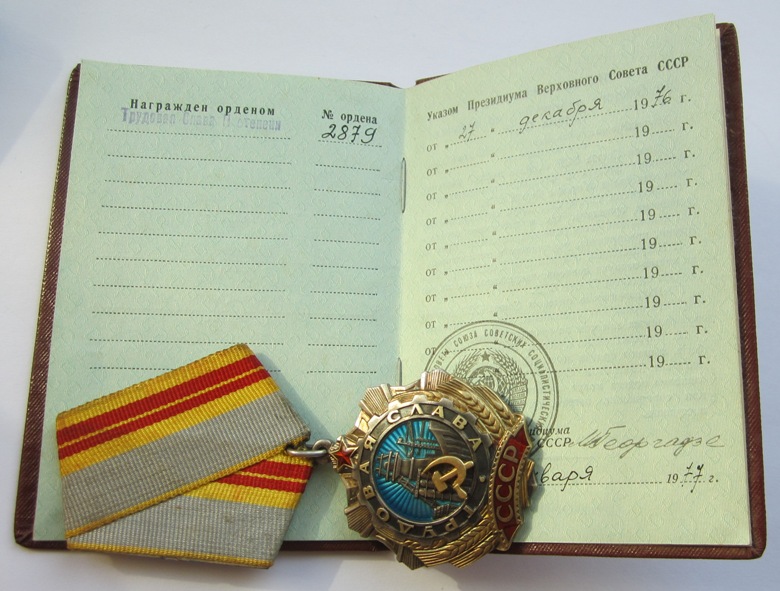 Награжден орденом
Трудовая Слава III степени
№ ордена
2879
Указом Президиума Верховного Совета СССР
от „ 27 “ декабря 1976 г.
от „ “ 19 г.
от „ “ 19 г.
от „ “ 19 г.
от „ “ 19 г.
от „ “ 19 г.
от „ “ 19 г.
от „ “ 19 г.
от „ “ 19 г.
СОЮЗА СОВЕТСКИХ СОЦИАЛИСТИЧЕСКИ
идиума
СССР МГеоргадзе
нваря 1977 г.
ТРУДОВАЯ СЛАВА
СССР